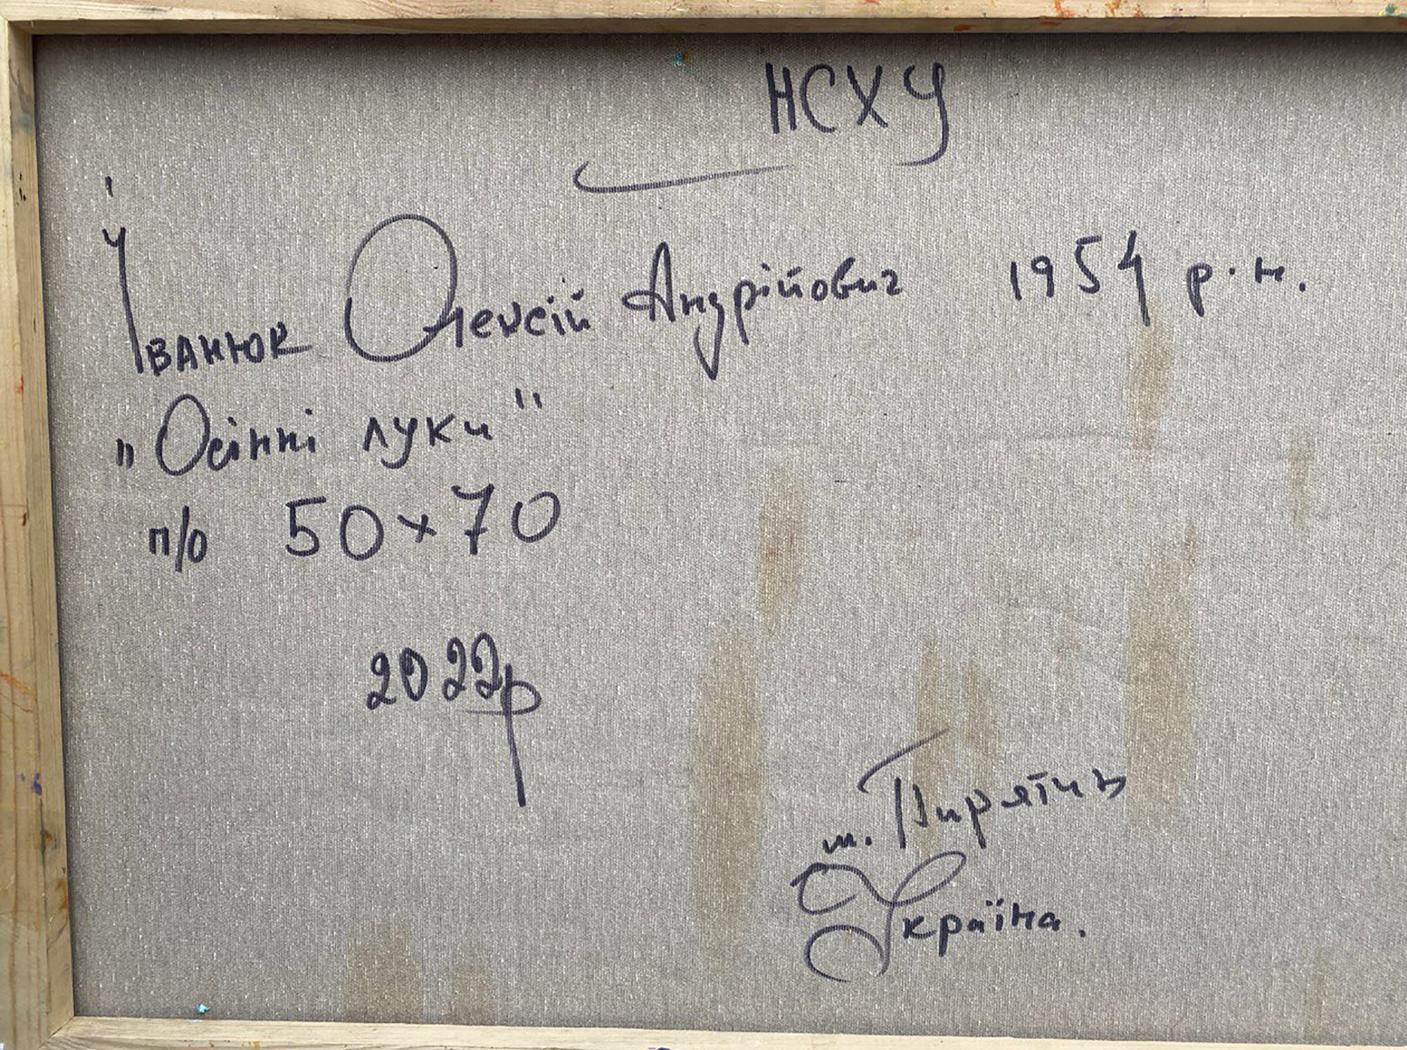 НСХУ
Іванюк Олексій Андрійович 1954 р.н.
„Осінні луки"
п/о 50×70
2022р
м. Пирятин
Україна.